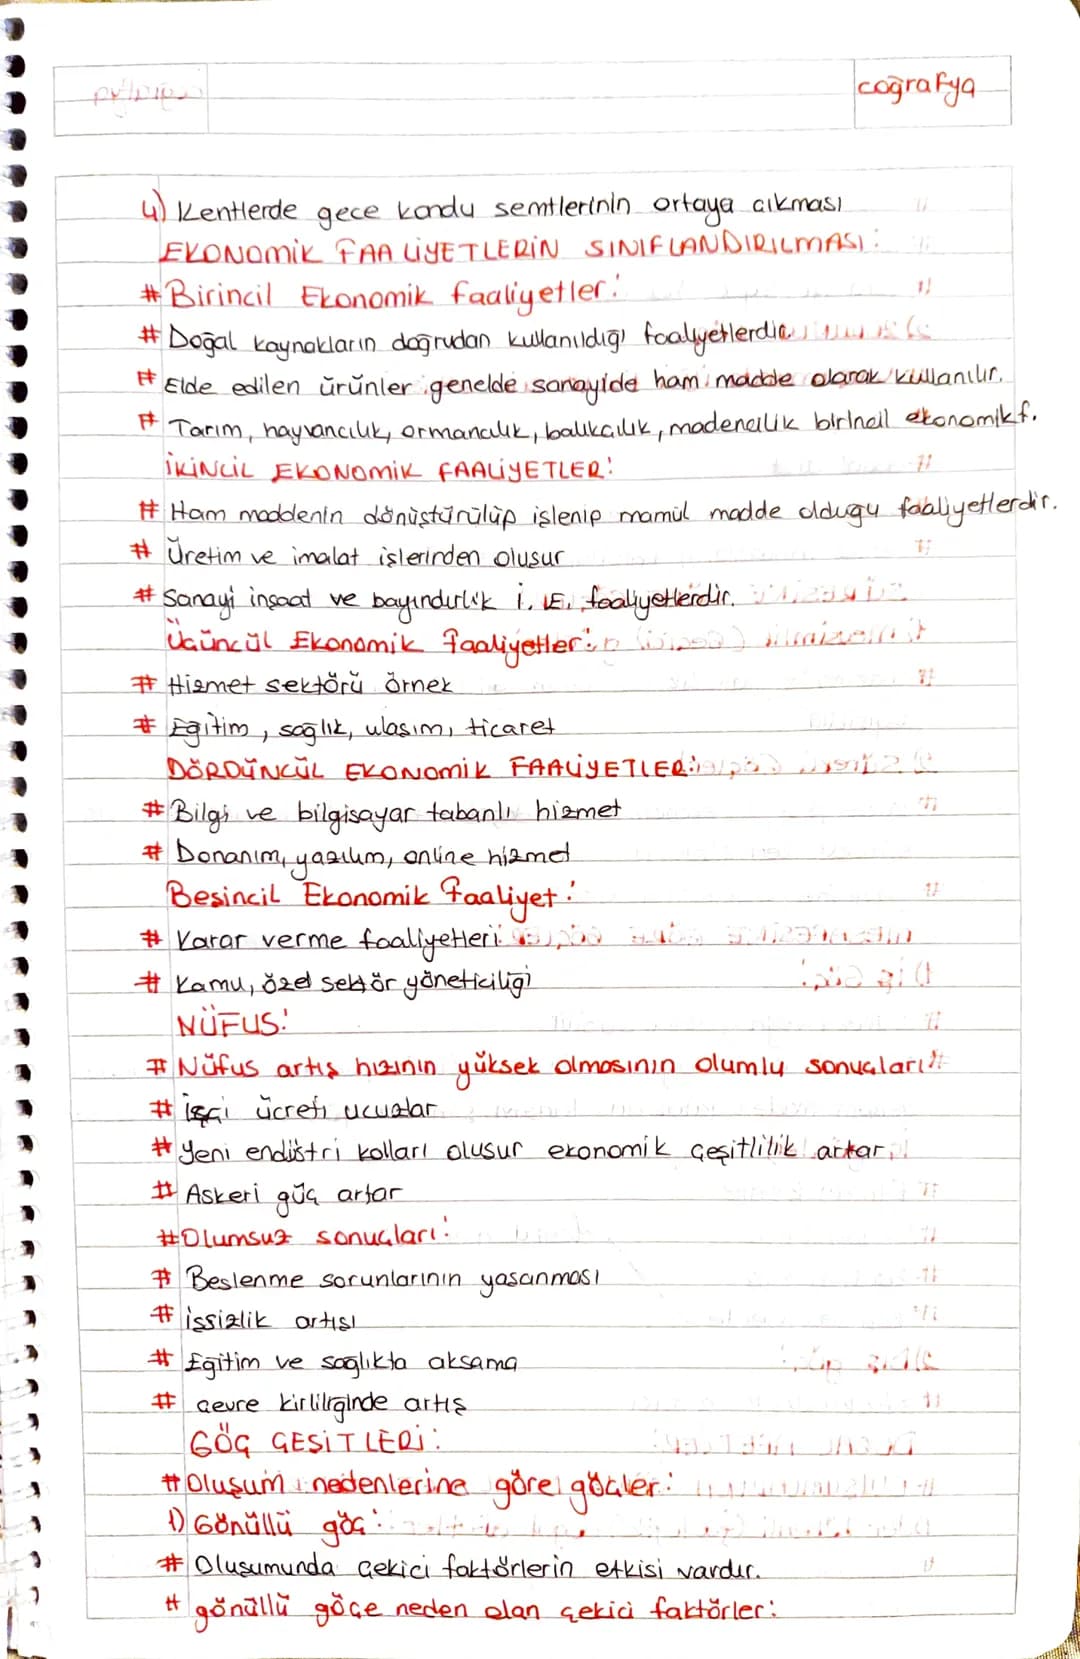 coğrafya
4) Kentlerde gece kondu semtlerinin ortaya cıkması
EKONOMİK FAALİYETLERİN SINIFLANDIRILMASI:
# Birincil Ekonomik faaliyetler:
# Doğal kaynakların doğrudan kullanıldığı faaliyetlerdir
# Elde edilen ürünler genelde sanayide ham madde olarak kullanılır.
# Tarım, hayvancılık, ormancılık, balıkcılık, madencilik birincil ekonomik f.
İKİNCİL EKONOMİK FAALİYETLER:
# Ham maddenin dönüştürülüp işlenip mamül madde olduğu faaliyetlerdir.
# Üretim ve imalat işlerinden oluşur
# Sanayi inşaat ve bayındırlık i. E. faaliyetlerdir.
Üçüncül Ekonomik faaliyetler:
# Hizmet sektörü örnek
# Eğitim, sağlık, ulaşım, ticaret
DÖRDÜNCÜL EKONOMİK FAALİYETLER:
# Bilgi ve bilgisayar tabanlı hizmet
# Donanım, yazılım, online hizmet
Beşincil Ekonomik Faaliyet:
# Karar verme faaliyetleri
# Kamu, özel sektör yöneticiliği
NÜFUS:
# Nüfus artış hızının yüksek olmasının olumlu sonuçları:
# işçi ücreti ucuzlar
# Yeni endüstri kolları olusur ekonomik çeşitlilik artar
# Askeri güç artar
# Olumsuz sonuçları:
# Beslenme sorunlarının yaşanması
# işsizlik artışı
# Eğitim ve sağlıkta aksama
# çevre kirliliğinde artış
GÖÇ ÇEŞİTLERİ:
# Oluşum nedenlerine göre göçler:
1) Gönüllü göç:
# Oluşumunda çekici faktörlerin etkisi vardır.
# gönüllü göçe neden olan çekici faktörler: